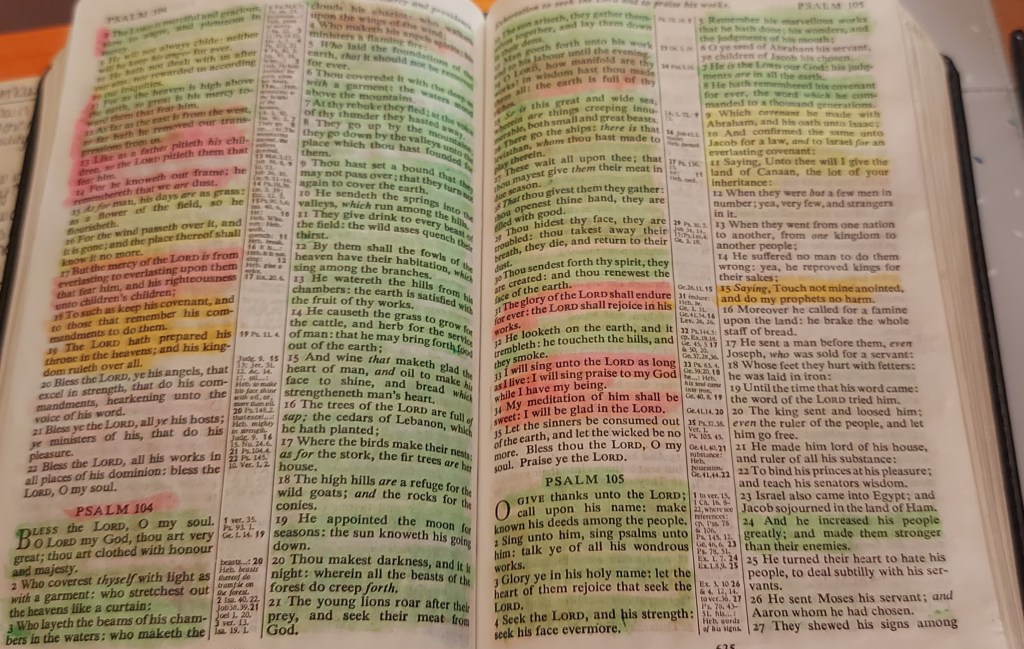 PSALM 104
slow to anger, and plenteous in
9 He will not always chide: neither
will he keep his anger for ever.
10 He hath not dealt with us after
our sins; nor rewarded us according
to our iniquities.
11 For as the heaven is high above
the earth, so great is his mercy to-
ward them that fear him.
12 As far as the east is from the west,
so far hath he removed our trans-
gressions from us.
13 Like as a father pitieth his chil-
dren, so the LORD pitieth them that
fear him.
14 For he knoweth our frame; he
remembereth that we are dust.
15 As for man, his days are as grass:
as a flower of the field, so he
flourisheth.
16 For the wind passeth over it, and
it is gone; and the place thereof shall
know it no more.
17 But the mercy of the LORD is from
everlasting to everlasting upon them
that fear him, and his righteousness
unto children's children;
18 To such as keep his covenant, and
to those that remember his com-
mandments to do them.
19 The LORD hath prepared his
throne in the heavens; and his king-
dom ruleth over all.
20 Bless the LORD, ye his angels, that
excel in strength, that do his com-
mandments, hearkening unto the
voice of his word.
21 Bless ye the LORD, all ye his hosts;
ye ministers of his, that do his
pleasure.
22 Bless the LORD, all his works in
all places of his dominion: bless the
LORD, O my soul.
PSALM 104
BLESS the LORD, O my soul.
O LORD my God, thou art very
great; thou art clothed with honour
and majesty.
2 Who coverest thyself with light as
with a garment: who stretchest out
the heavens like a curtain:
3 Who layeth the beams of his cham-
bers in the waters: who maketh the
clouds his chariot: who walketh
upon the wings of the wind:
4 Who maketh his angels spirits; his
ministers a flaming fire:
5 Who laid the foundations of the
earth, that it should not be removed
for ever.
6 Thou coveredst it with the deep as
with a garment: the waters stood
above the mountains.
7 At thy rebuke they fled; at the voice
of thy thunder they hasted away.
8 They go up by the mountains;
they go down by the valleys unto the
place which thou hast founded for
them.
9 Thou hast set a bound that they
may not pass over; that they turn not
again to cover the earth.
10 He sendeth the springs into the
valleys, which run among the hills.
11 They give drink to every beast of
the field: the wild asses quench their
thirst.
12 By them shall the fowls of the
heaven have their habitation, which
sing among the branches.
13 He watereth the hills from his
chambers: the earth is satisfied with
the fruit of thy works.
14 He causeth the grass to grow for
the cattle, and herb for the service
of man: that he may bring forth food
out of the earth;
15 And wine that maketh glad the
heart of man, and oil to make his
face to shine, and bread which
strengtheneth man's heart.
16 The trees of the LORD are full of
sap; the cedars of Lebanon, which
he hath planted;
17 Where the birds make their nests:
as for the stork, the fir trees are her
house.
18 The high hills are a refuge for the
wild goats; and the rocks for the
conies.
19 He appointed the moon for
seasons: the sun knoweth his going
down.
20 Thou makest darkness, and it is
night: wherein all the beasts of the
forest do creep forth.
21 The young lions roar after their
prey, and seek their meat from
God.
PSALM 105
sun ariseth, they gather them-
selves together, and lay them down
in their dens.
goeth forth unto his work
and to his labour until the evening.
O LORD, how manifold are thy
works! in wisdom hast thou made
them all: the earth is full of thy
riches.
So is this great and wide sea,
wherein are things creeping innu-
merable, both small and great beasts.
There go the ships: there is that
leviathan, whom thou hast made to
play therein.
These wait all upon thee; that
thou mayest give them their meat in
due season.
That thou givest them they gather:
thou openest thine hand, they are
filled with good.
29 Thou hidest thy face, they are
troubled: thou takest away their
breath, they die, and return to their
dust.
30 Thou sendest forth thy spirit, they
are created: and thou renewest the
face of the earth.
31 The glory of the LORD shall endure
for ever: the LORD shall rejoice in his
works.
32 He looketh on the earth, and it
trembleth: he toucheth the hills, and
they smoke.
33 I will sing unto the LORD as long
as I live: I will sing praise to my God
while I have my being.
34 My meditation of him shall be
sweet: I will be glad in the LORD.
35 Let the sinners be consumed out
of the earth, and let the wicked be no
more. Bless thou the LORD, O my
soul. Praise ye the LORD.
PSALM 105
O GIVE thanks unto the LORD;
call upon his name: make
known his deeds among the people.
2 Sing unto him, sing psalms unto
him: talk ye of all his wondrous
works.
3 Glory ye in his holy name: let the
heart of them rejoice that seek the
LORD.
4 Seek the LORD, and his strength:
seek his face evermore.
5 Remember his marvellous works
that he hath done; his wonders, and
the judgments of his mouth;
6 O ye seed of Abraham his servant,
ye children of Jacob his chosen.
7 He is the LORD our God: his judg-
ments are in all the earth.
8 He hath remembered his covenant
for ever, the word which he com-
manded to a thousand generations.
9 Which covenant he made with
Abraham, and his oath unto Isaac;
10 And confirmed the same unto
Jacob for a law, and to Israel for an
everlasting covenant:
11 Saying, Unto thee will I give the
land of Canaan, the lot of your
inheritance:
12 When they were but a few men in
number; yea, very few, and strangers
in it.
13 When they went from one nation
to another, from one kingdom to
another people;
14 He suffered no man to do them
wrong: yea, he reproved kings for
their sakes;
15 Saying, Touch not mine anointed,
and do my prophets no harm.
16 Moreover he called for a famine
upon the land: he brake the whole
staff of bread.
17 He sent a man before them, even
Joseph, who was sold for a servant:
18 Whose feet they hurt with fetters:
he was laid in iron:
19 Until the time that his word came:
the word of the LORD tried him.
20 The king sent and loosed him;
even the ruler of the people, and let
him go free.
21 He made him lord of his house,
and ruler of all his substance:
22 To bind his princes at his pleasure;
and teach his senators wisdom.
23 Israel also came into Egypt; and
Jacob sojourned in the land of Ham.
24 And he increased his people
greatly; and made them stronger
than their enemies.
25 He turned their heart to hate his
people, to deal subtilly with his ser-
vants.
26 He sent Moses his servant; and
Aaron whom he had chosen.
27 They shewed his signs among